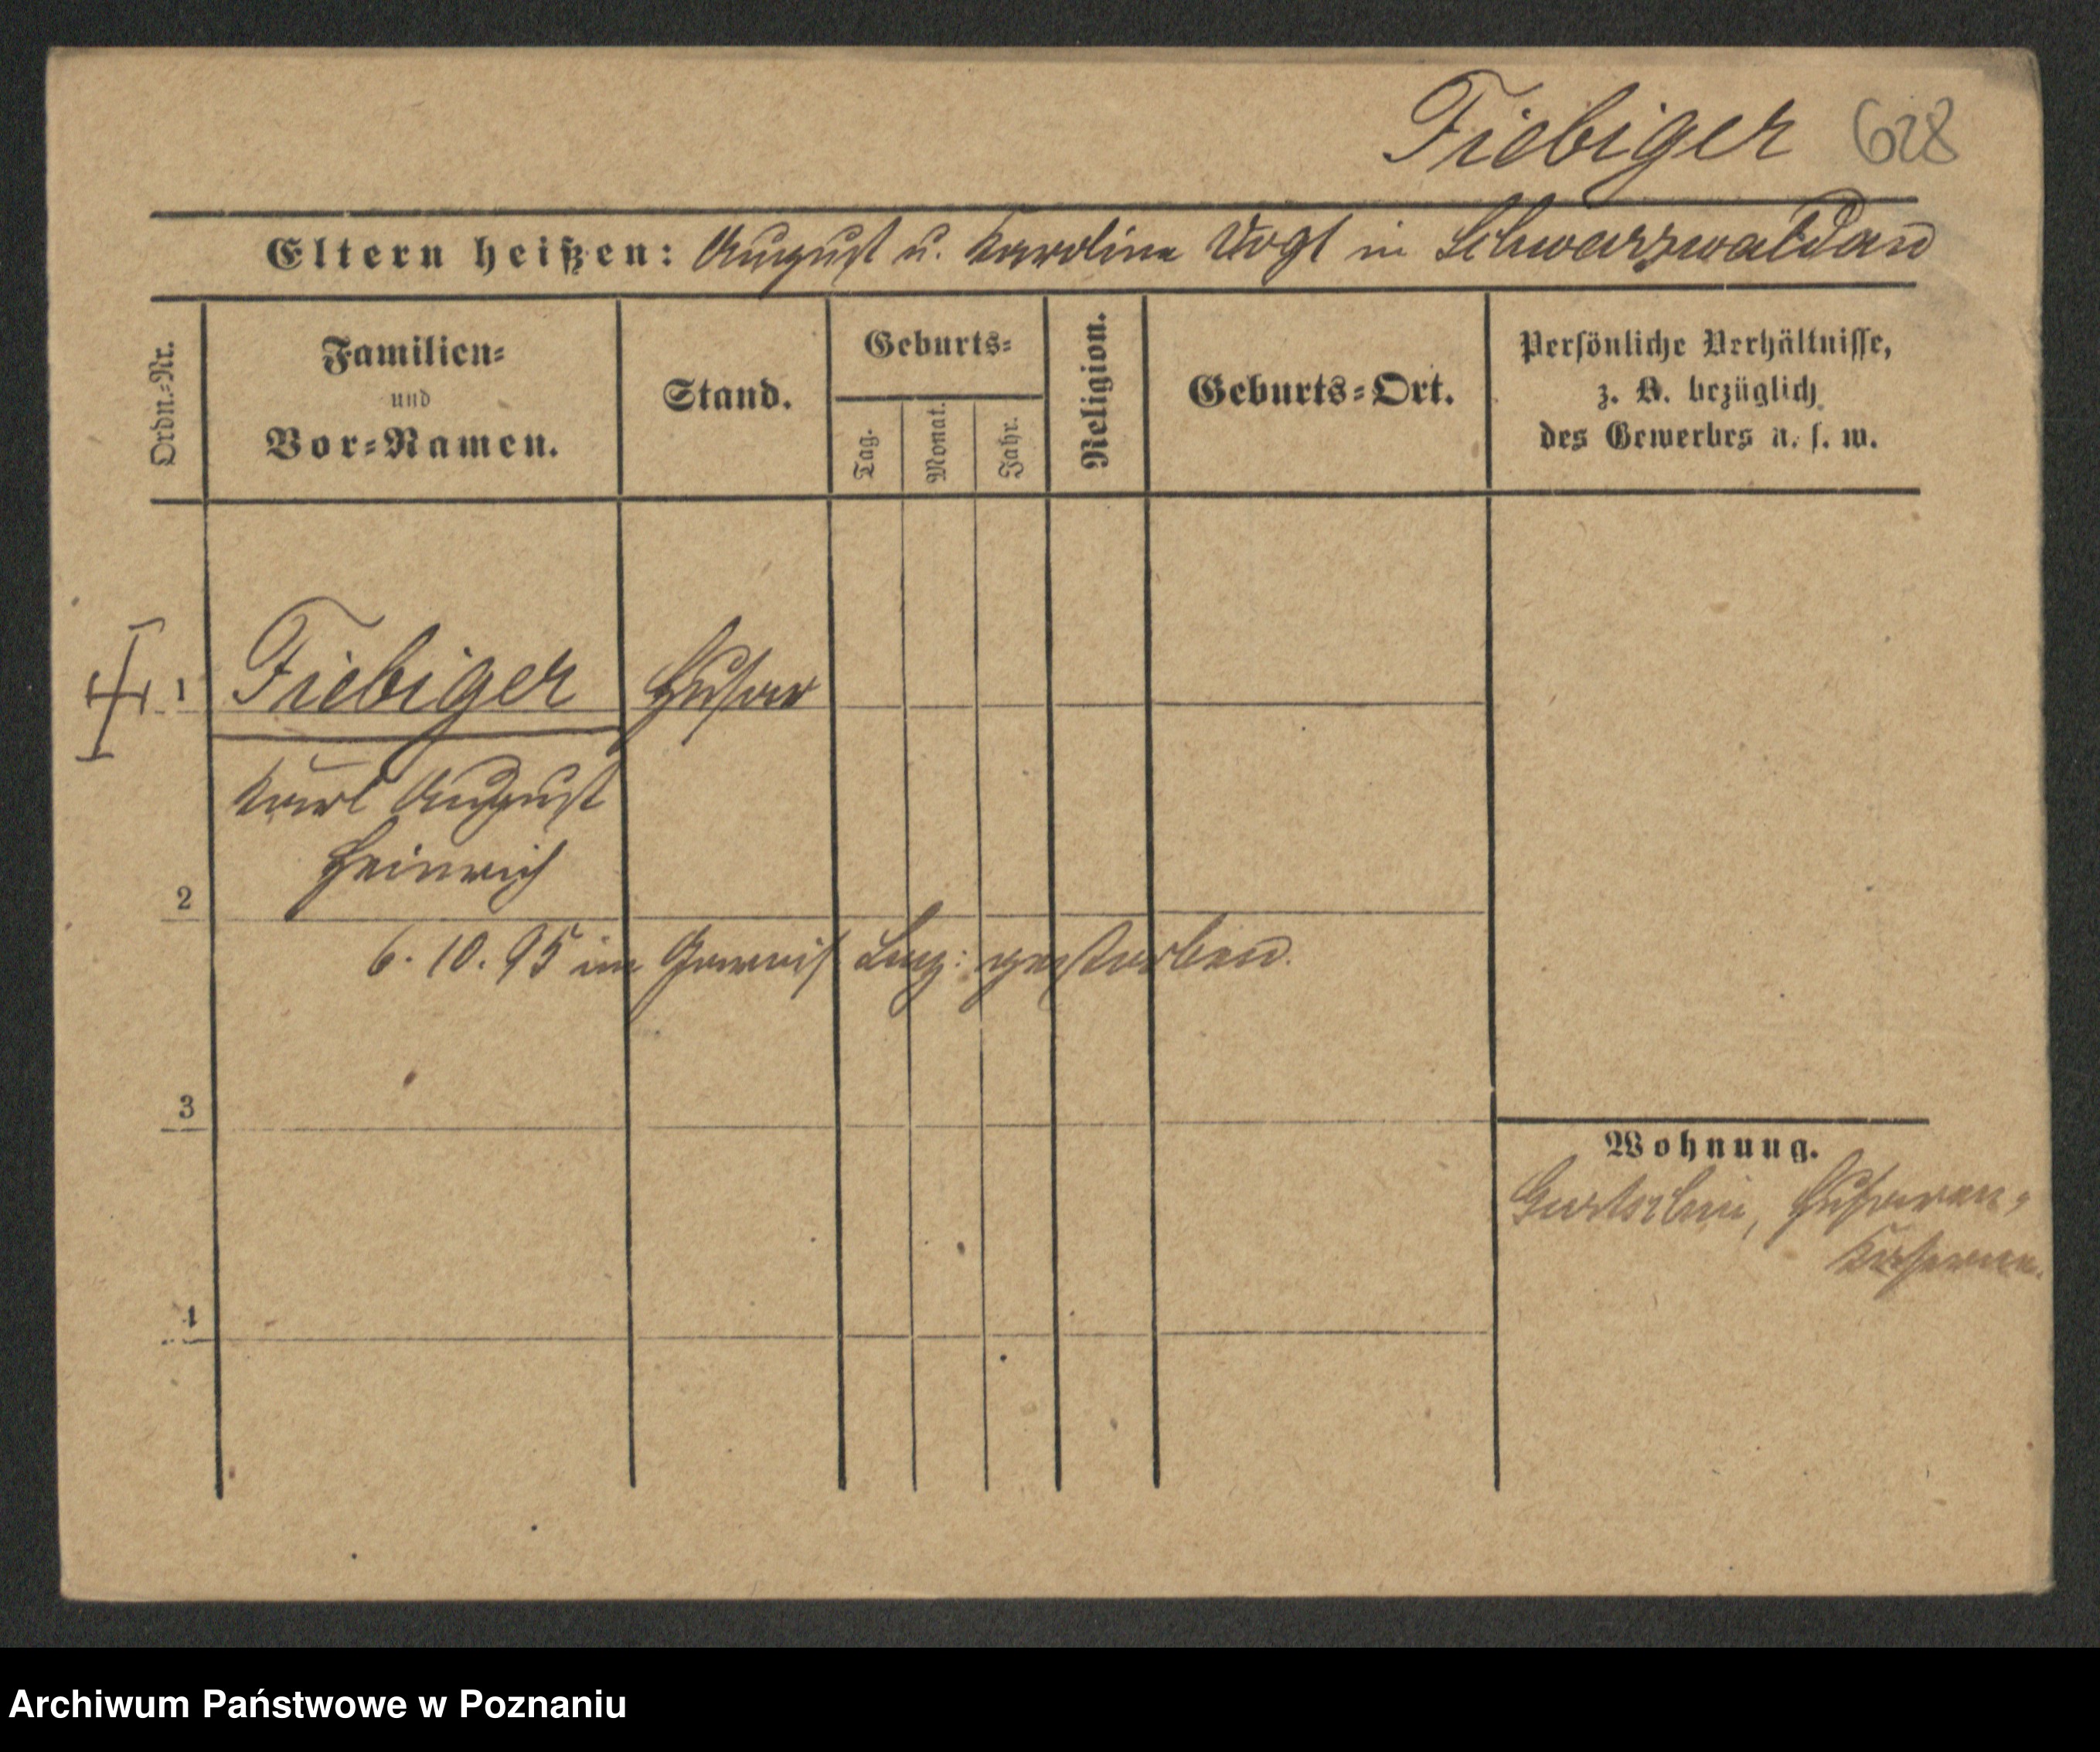 Fiebiger 628
Eltern heißen: August u. Karoline Vogt in Schwarzwaldau
Ordn.-Nr.
Familien-
und
Vor-Namen.
Stand.
Geburts-
Tag.
Monat.
Jahr.
Religion.
Geburts-Ort.
Persönliche Verhältnisse,
z. B. bezüglich
des Gewerbes u. s. w.
1 Fiebiger Husar
Karl August
Heinrich
2
6. 10. 95 im Garnis Laz: gestorben.
3
Wohnung.
Husaren-
Kaserne.
4
Archiwum Państwowe w Poznaniu